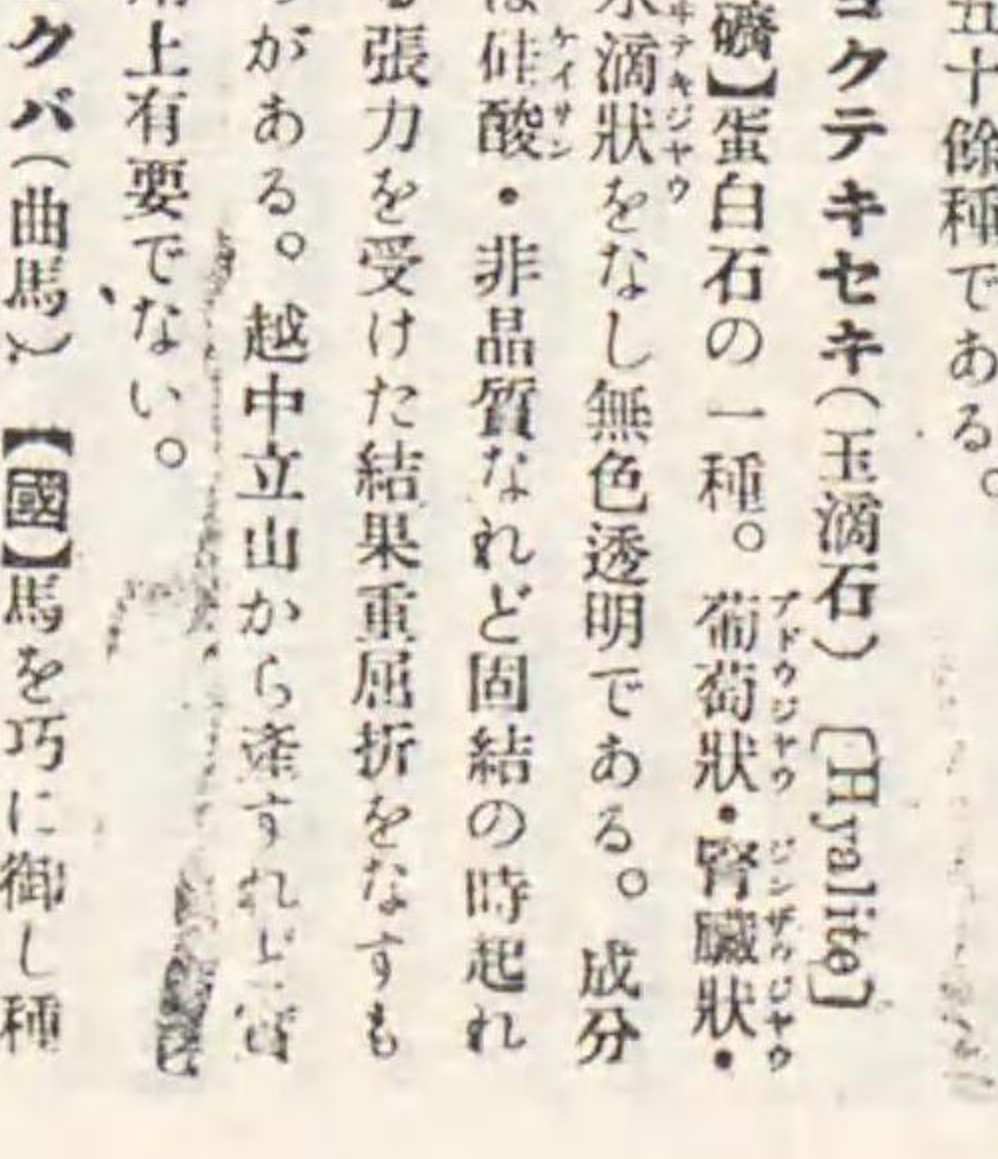 五十餘種である。
コクテキセキ(玉滴石) 〔Hyalite〕
礦】蛋白石の一種。葡萄狀・腎臟狀・
ブドウジヤウ ジンザウジヤウ
水滴狀をなし無色透明である。成分
ヰテキジヤウ
は硅酸・非晶質なれど固結の時起れ
ケイサン
る張力を受けた結果重屈折をなすも
がある。越中立山から產すれど實
用上有要でない。
クバ(曲馬) 【國】馬を巧に御し種